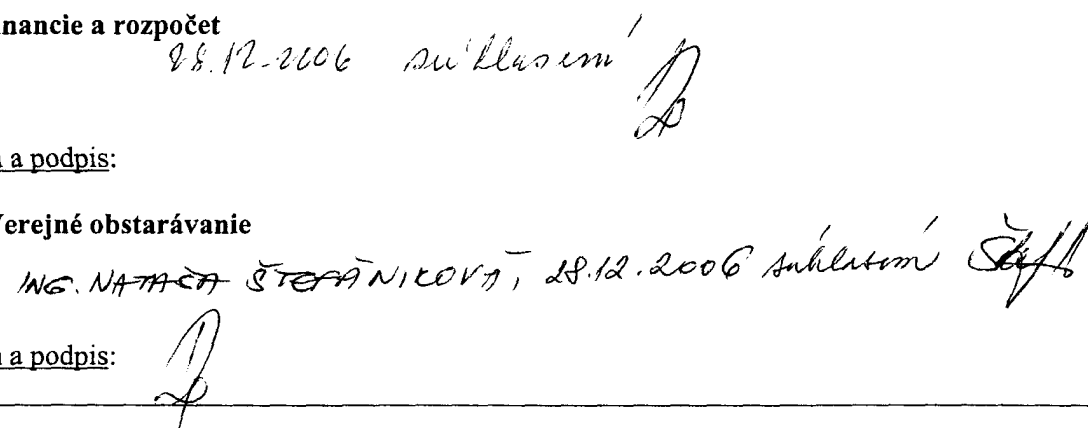 nancie a rozpočet
28.12.2006 súhlasím
a podpis:
Verejné obstarávanie
ING. NATAŠA ŠTEFÁNIKOVÁ, 28.12.2006 súhlasím
a podpis: